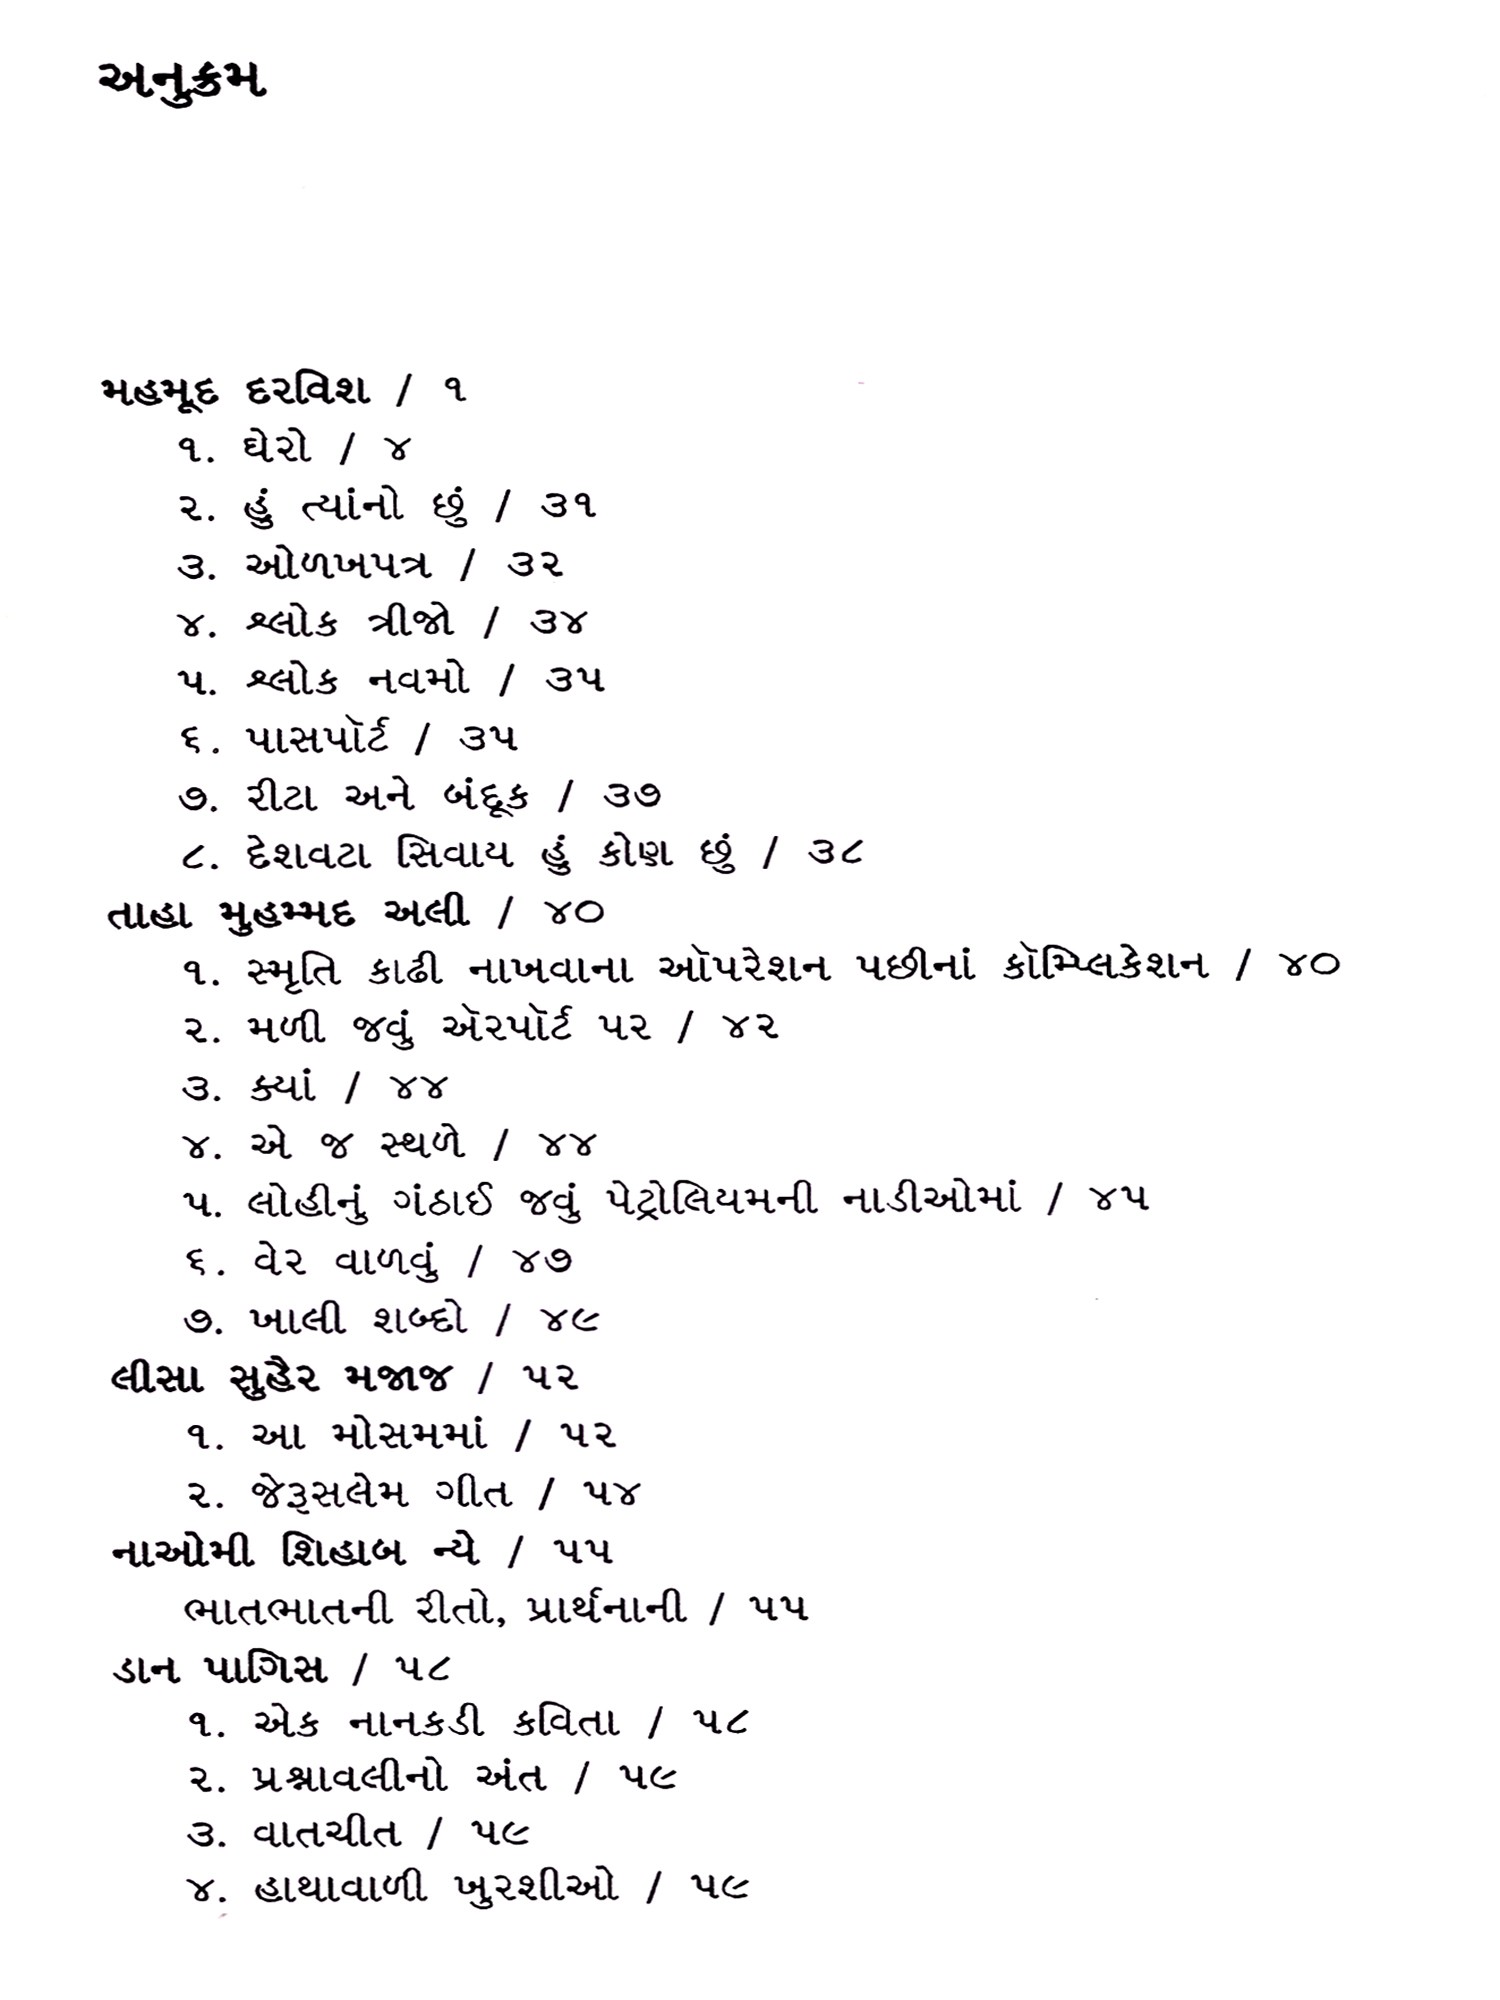 અનુક્રમ
મહમૂદ દરવિશ / ૧
૧. ઘેરો / ૪
૨. હું ત્યાંનો છું / ૩૧
૩. ઓળખપત્ર / ૩૨
૪. શ્લોક ત્રીજો / ૩૪
૫. શ્લોક નવમો / ૩૫
૬. પાસપૉર્ટ / ૩૫
૭. રીટા અને બંદૂક / ૩૭
૮. દેશવટા સિવાય હું કોણ છું / ૩૮
તાહા મુહમ્મદ અલી / ૪૦
૧. સ્મૃતિ કાઢી નાખવાના ઑપરેશન પછીનાં કૉમ્પ્લિકેશન / ૪૦
૨. મળી જવું ઍરપૉર્ટ પર / ૪૨
૩. ક્યાં / ૪૪
૪. એ જ સ્થળે / ૪૪
૫. લોહીનું ગંઠાઈ જવું પેટ્રોલિયમની નાડીઓમાં / ૪૫
૬. વેર વાળવું / ૪૭
૭. ખાલી શબ્દો / ૪૯
લીસા સુહૈર મજાજ / ૫૨
૧. આ મોસમમાં / ૫૨
૨. જેરૂસલેમ ગીત / ૫૪
નાઓમી શિહાબ ન્યે / ૫૫
ભાતભાતની રીતો, પ્રાર્થનાની / ૫૫
ડાન પાગિસ / ૫૮
૧. એક નાનકડી કવિતા / ૫૮
૨. પ્રશ્નાવલીનો અંત / ૫૯
૩. વાતચીત / ૫૯
૪. હાથાવાળી ખુરશીઓ / ૫૯